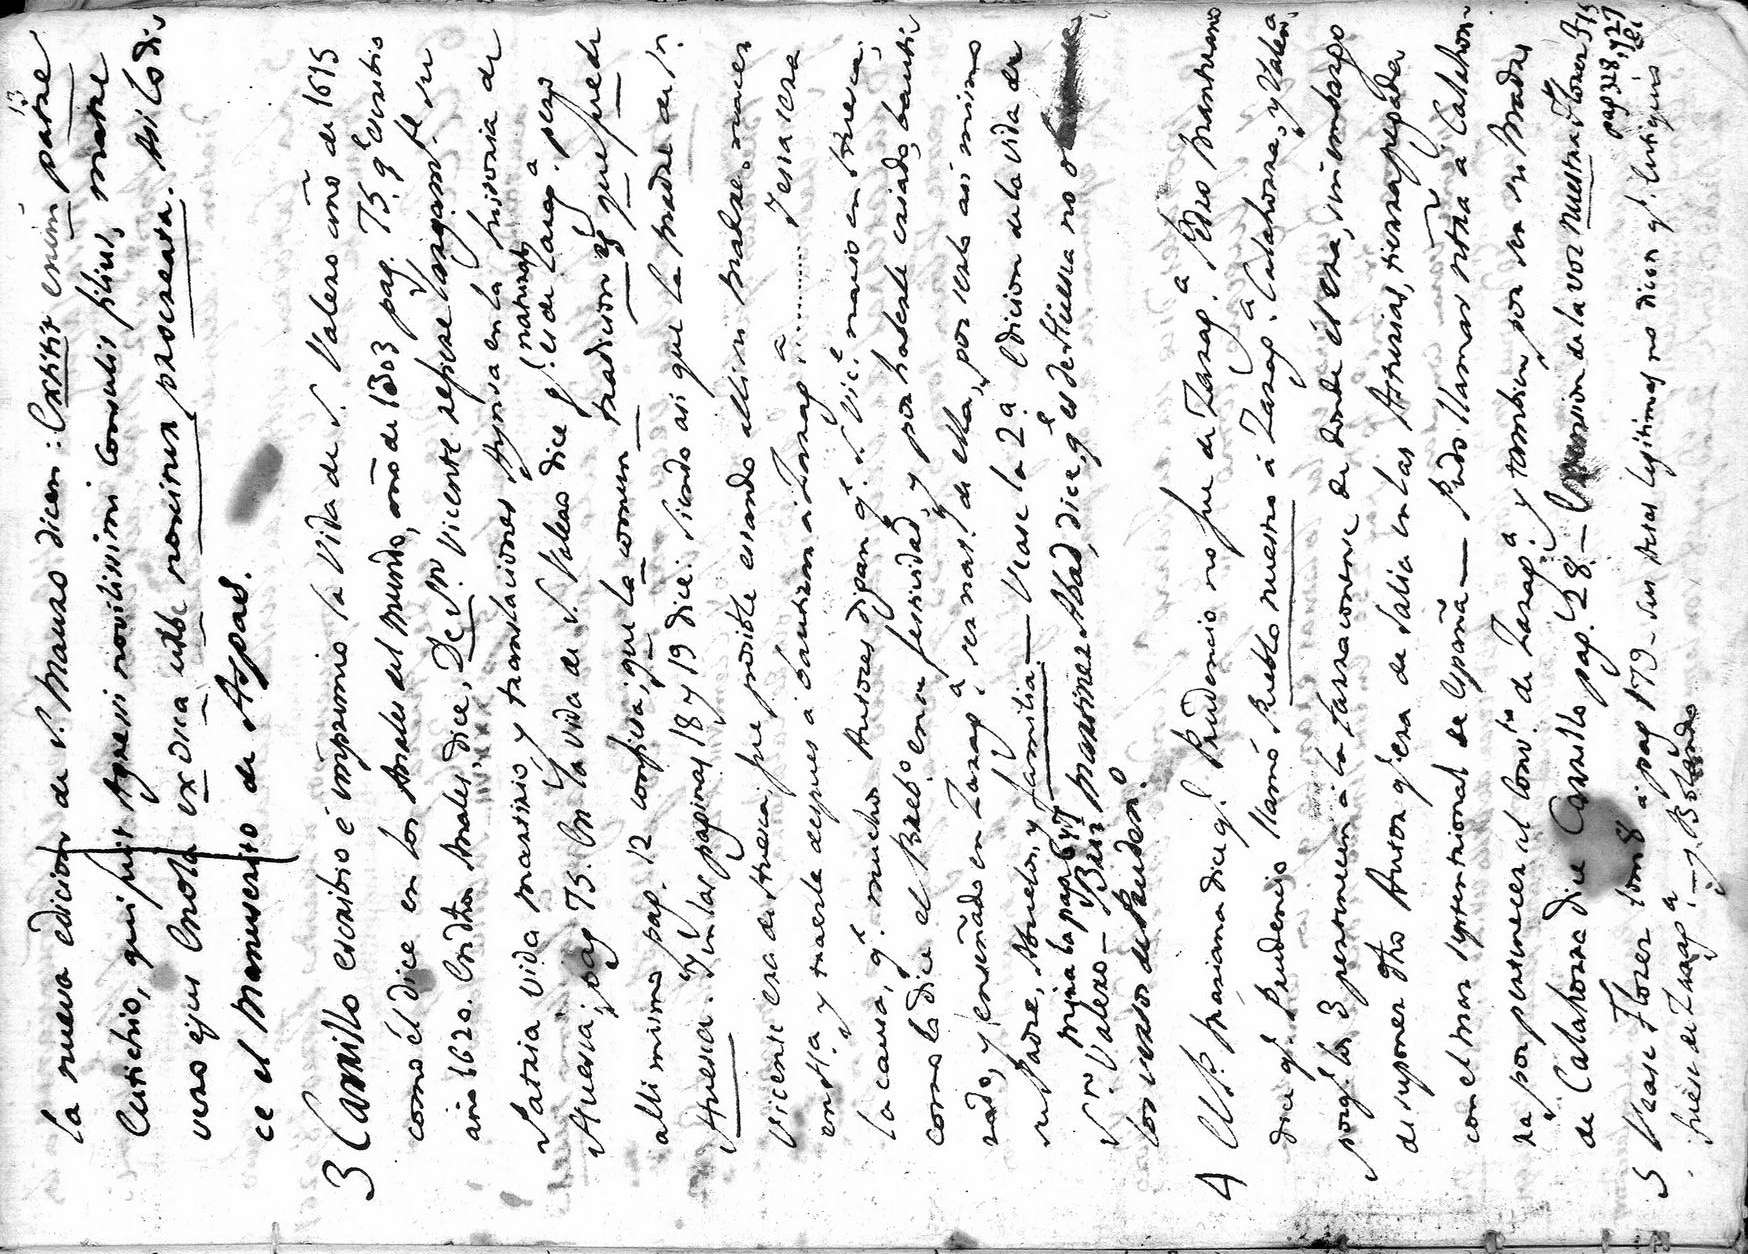 13
la nueva edicion de S. Mauro dicen: Extitit enim patre
Eutichio, qui fuit Agresti novilissimi Consulis filius, matre
vero ejus Enola ex Osca urbe nositur procreata. Asi lo di-
ce el Manuscrito de Aspas.
3 Carrillo escribio é imprimio la Vida de S. Valero año de 1615
como él dice en los Anales del Mundo, año de 1303 pag. 75. q.e escribio
año 1620. En dhos Anales, dice, De Sn. Vicente refiere largam.te su
Patria vida martirio, y translaciones Aynsa en la historia de
Huesca, pag 75. En la vida de S. Valero dice q.e es natural de Zarag.a pero
alli mismo pag. 12 confiesa, que la comun tradicion es que fue de
Huesca. Y en las paginas 18 y 19 dice: siendo asi que la Madre de S.
Vicente era de Huesca, fue posible estando alli su padre nacer
en ella, y traerle despues á bautizar a Zarag.a .......... Y esta sera
la causa, q.e muchos Autores digan q.e S. Vic.e nació en Huesca,
como lo dice el Breb.o en su festividad, y por haberle criado, bauti-
zado, y enseñado en Zarag.a ser nat.l de ella, por serlo asi mismo
su Padre, Abuelos, y familia. — Vease la 2.a Edicion de la vida de
S.n Valero — Briz Martinez Abad, dice q.e es de Huesca no o
mira la pag 647
los versos de Pruden.o
4 El P. Mariana dice q.e Prudencio no fue de Zarag.a Pedro Mantuano
dice q.e Prudencio llamó Pueblo nuestro á Zarag.a Calahorra, y Valen.a
porq.e los 3 pertenecen a la Tarraconense de donde él era, sin embargo
de suponer dho Autor q.e era de Salia en las Asturias, tierra pegada
con el mar septentrional de España — Pudo llamar nra á Calahor-
ra por pertenecer al Conv.to de Zarag.a y tambien por ser su Madre
de Calahorra dice Carrillo pag. 28 — Extension de la voz nuestra, Florez
pag 328, y 27
5 Vease Florez tom 8 á pag 179 — sus Actas legitimas no dicen q.e Eutiquio
fuese de Zarag.a — J. Bolando